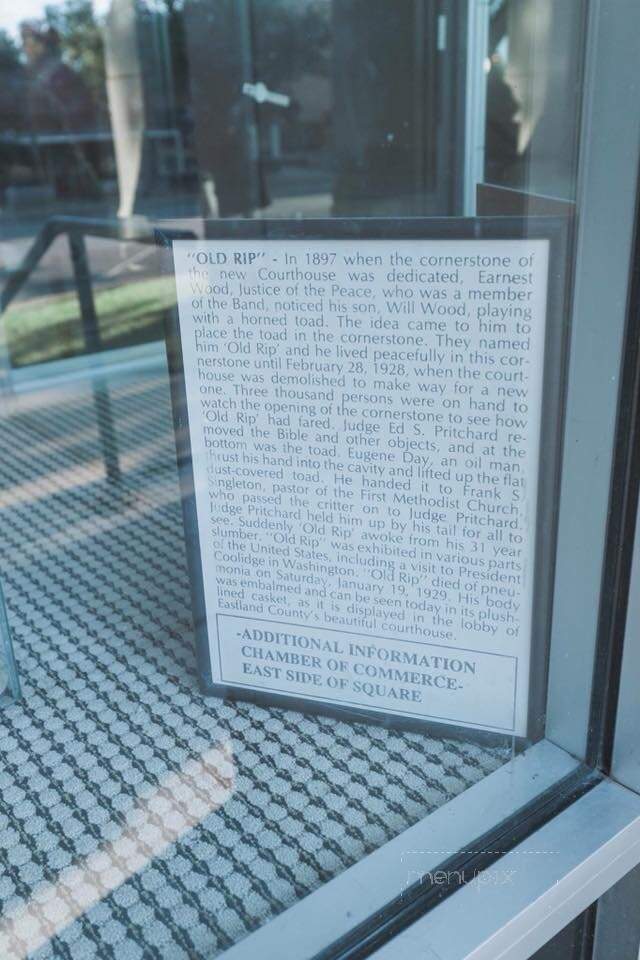 "OLD RIP" - In 1897 when the cornerstone of
the new Courthouse was dedicated, Earnest
Wood, Justice of the Peace, who was a member
of the Band, noticed his son, Will Wood, playing
with a horned toad. The idea came to him to
place the toad in the cornerstone. They named
him 'Old Rip' and he lived peacefully in this cor-
nerstone until February 28, 1928, when the court-
house was demolished to make way for a new
one. Three thousand persons were on hand to
watch the opening of the cornerstone to see how
'Old Rip' had fared. Judge Ed S. Pritchard re-
moved the Bible and other objects, and at the
bottom was the toad. Eugene Day, an oil man,
thrust his hand into the cavity and lifted up the flat
dust-covered toad. He handed it to Frank S.
Singleton, pastor of the First Methodist Church,
who passed the critter on to Judge Pritchard.
Judge Pritchard held him up by his tail for all to
see. Suddenly 'Old Rip' awoke from his 31 year
slumber. "Old Rip" was exhibited in various parts
of the United States, including a visit to President
Coolidge in Washington. "Old Rip" died of pneu-
monia on Saturday, January 19, 1929. His body
was embalmed and can be seen today in its plush-
lined casket, as it is displayed in the lobby of
Eastland County's beautiful courthouse.
-ADDITIONAL INFORMATION
CHAMBER OF COMMERCE-
EAST SIDE OF SQUARE
menupix